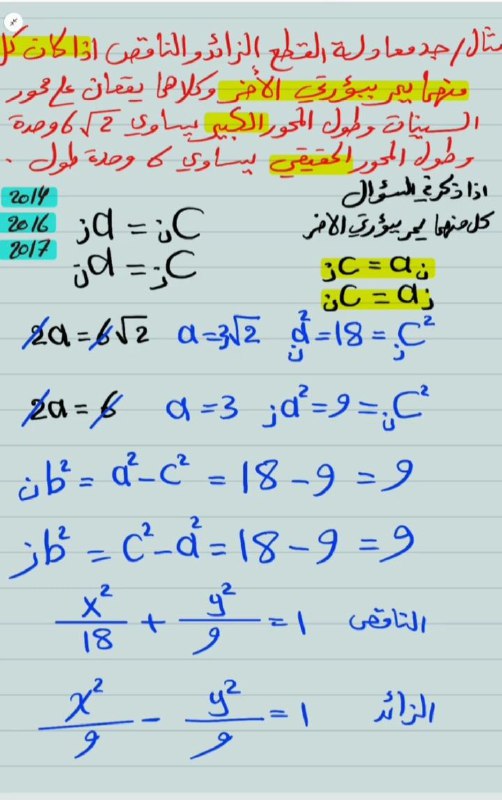 مثال/جد معادلة القطع الزائد والناقص اذا كان كل
منهما يمر ببؤرتي الأخر وكلاهما يقعان على محور
السينات وطول المحور الكبير يساوي 6√2 وحدة
وطول المحور الحقيقي يساوي 6 وحدة طول.
2014
2016
2017
اذا ذكر في السؤال
كل منهما يمر ببؤرتي الاخر
زa = نC
نa = زC
زC = aن
نC = aز
2a = 6√2 a = 3√2 a² ن = 18 = C² ز
2a = 6 a = 3 زa² = 9 = نC²
نb² = a² - c² = 18 - 9 = 9
زb² = c² - a² = 18 - 9 = 9
x²/18 + y²/9 = 1 الناقص
x²/9 - y²/9 = 1 الزائد